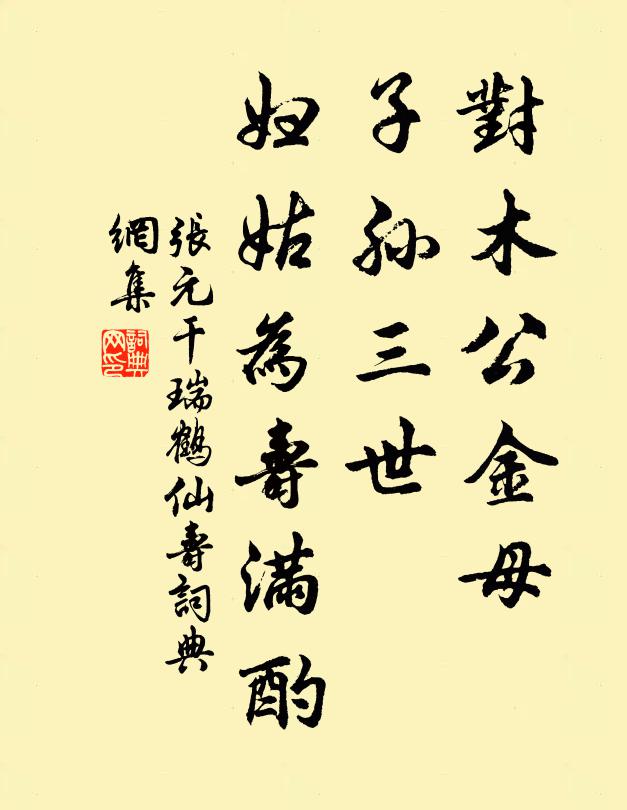 對木公金母
子孙三世
妇姑為壽滿酌
張元干瑞鶴仙壽詞典
網集
詞典
网印